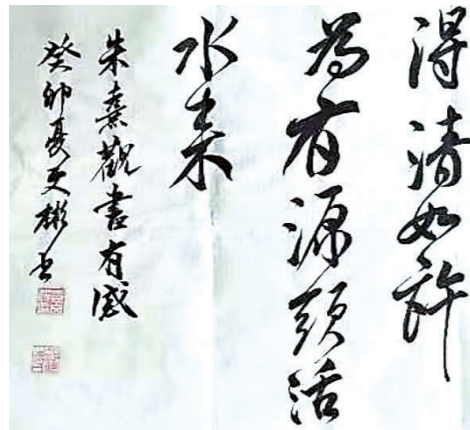 得清如許
為有源頭活
水来
朱熹觀書有感
癸卯夏文彬书